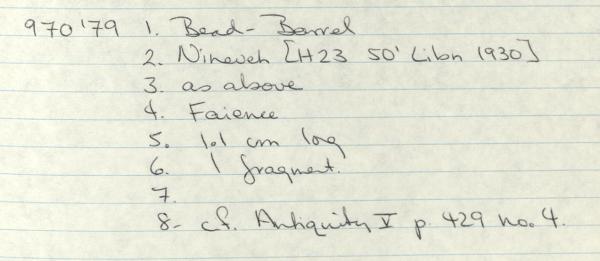 970'79 1. Bead-Barrel
2. Nineveh [H23 50' Libn 1930]
3. as above
4. Faience
5. 1.1 cm long
6. 1 fragment.
7.
8- cf. Antiquity V p. 429 no. 4.